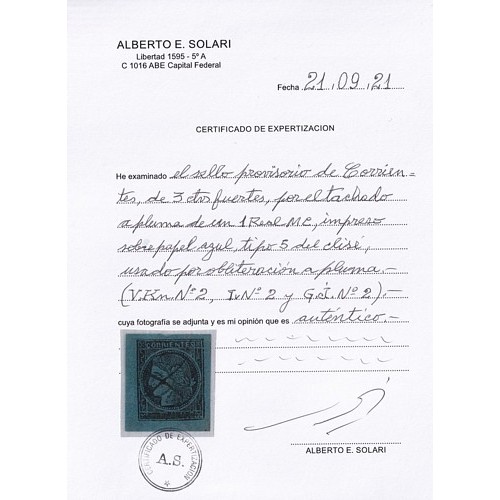 ALBERTO E. SOLARI
Libertad 1595 - 5º A
C 1016 ABE Capital Federal
Fecha 21.09.21
CERTIFICADO DE EXPERTIZACION
He examinado el sello provisorio de Corrien-
tes, de 3 ctvs fuertes, por el tachado
a pluma de un 1 Real M.C., impreso
sobre papel azul, tipo 5 del clisé,
usado por obliteración a pluma.-
(V.Kn. Nº2, Iv Nº2 y G.J. Nº2).-
cuya fotografía se adjunta y es mi opinión que es auténtico.-
CORRIENTES
CERTIFICADO DE EXPERTIZACION
A.S.
ALBERTO E. SOLARI